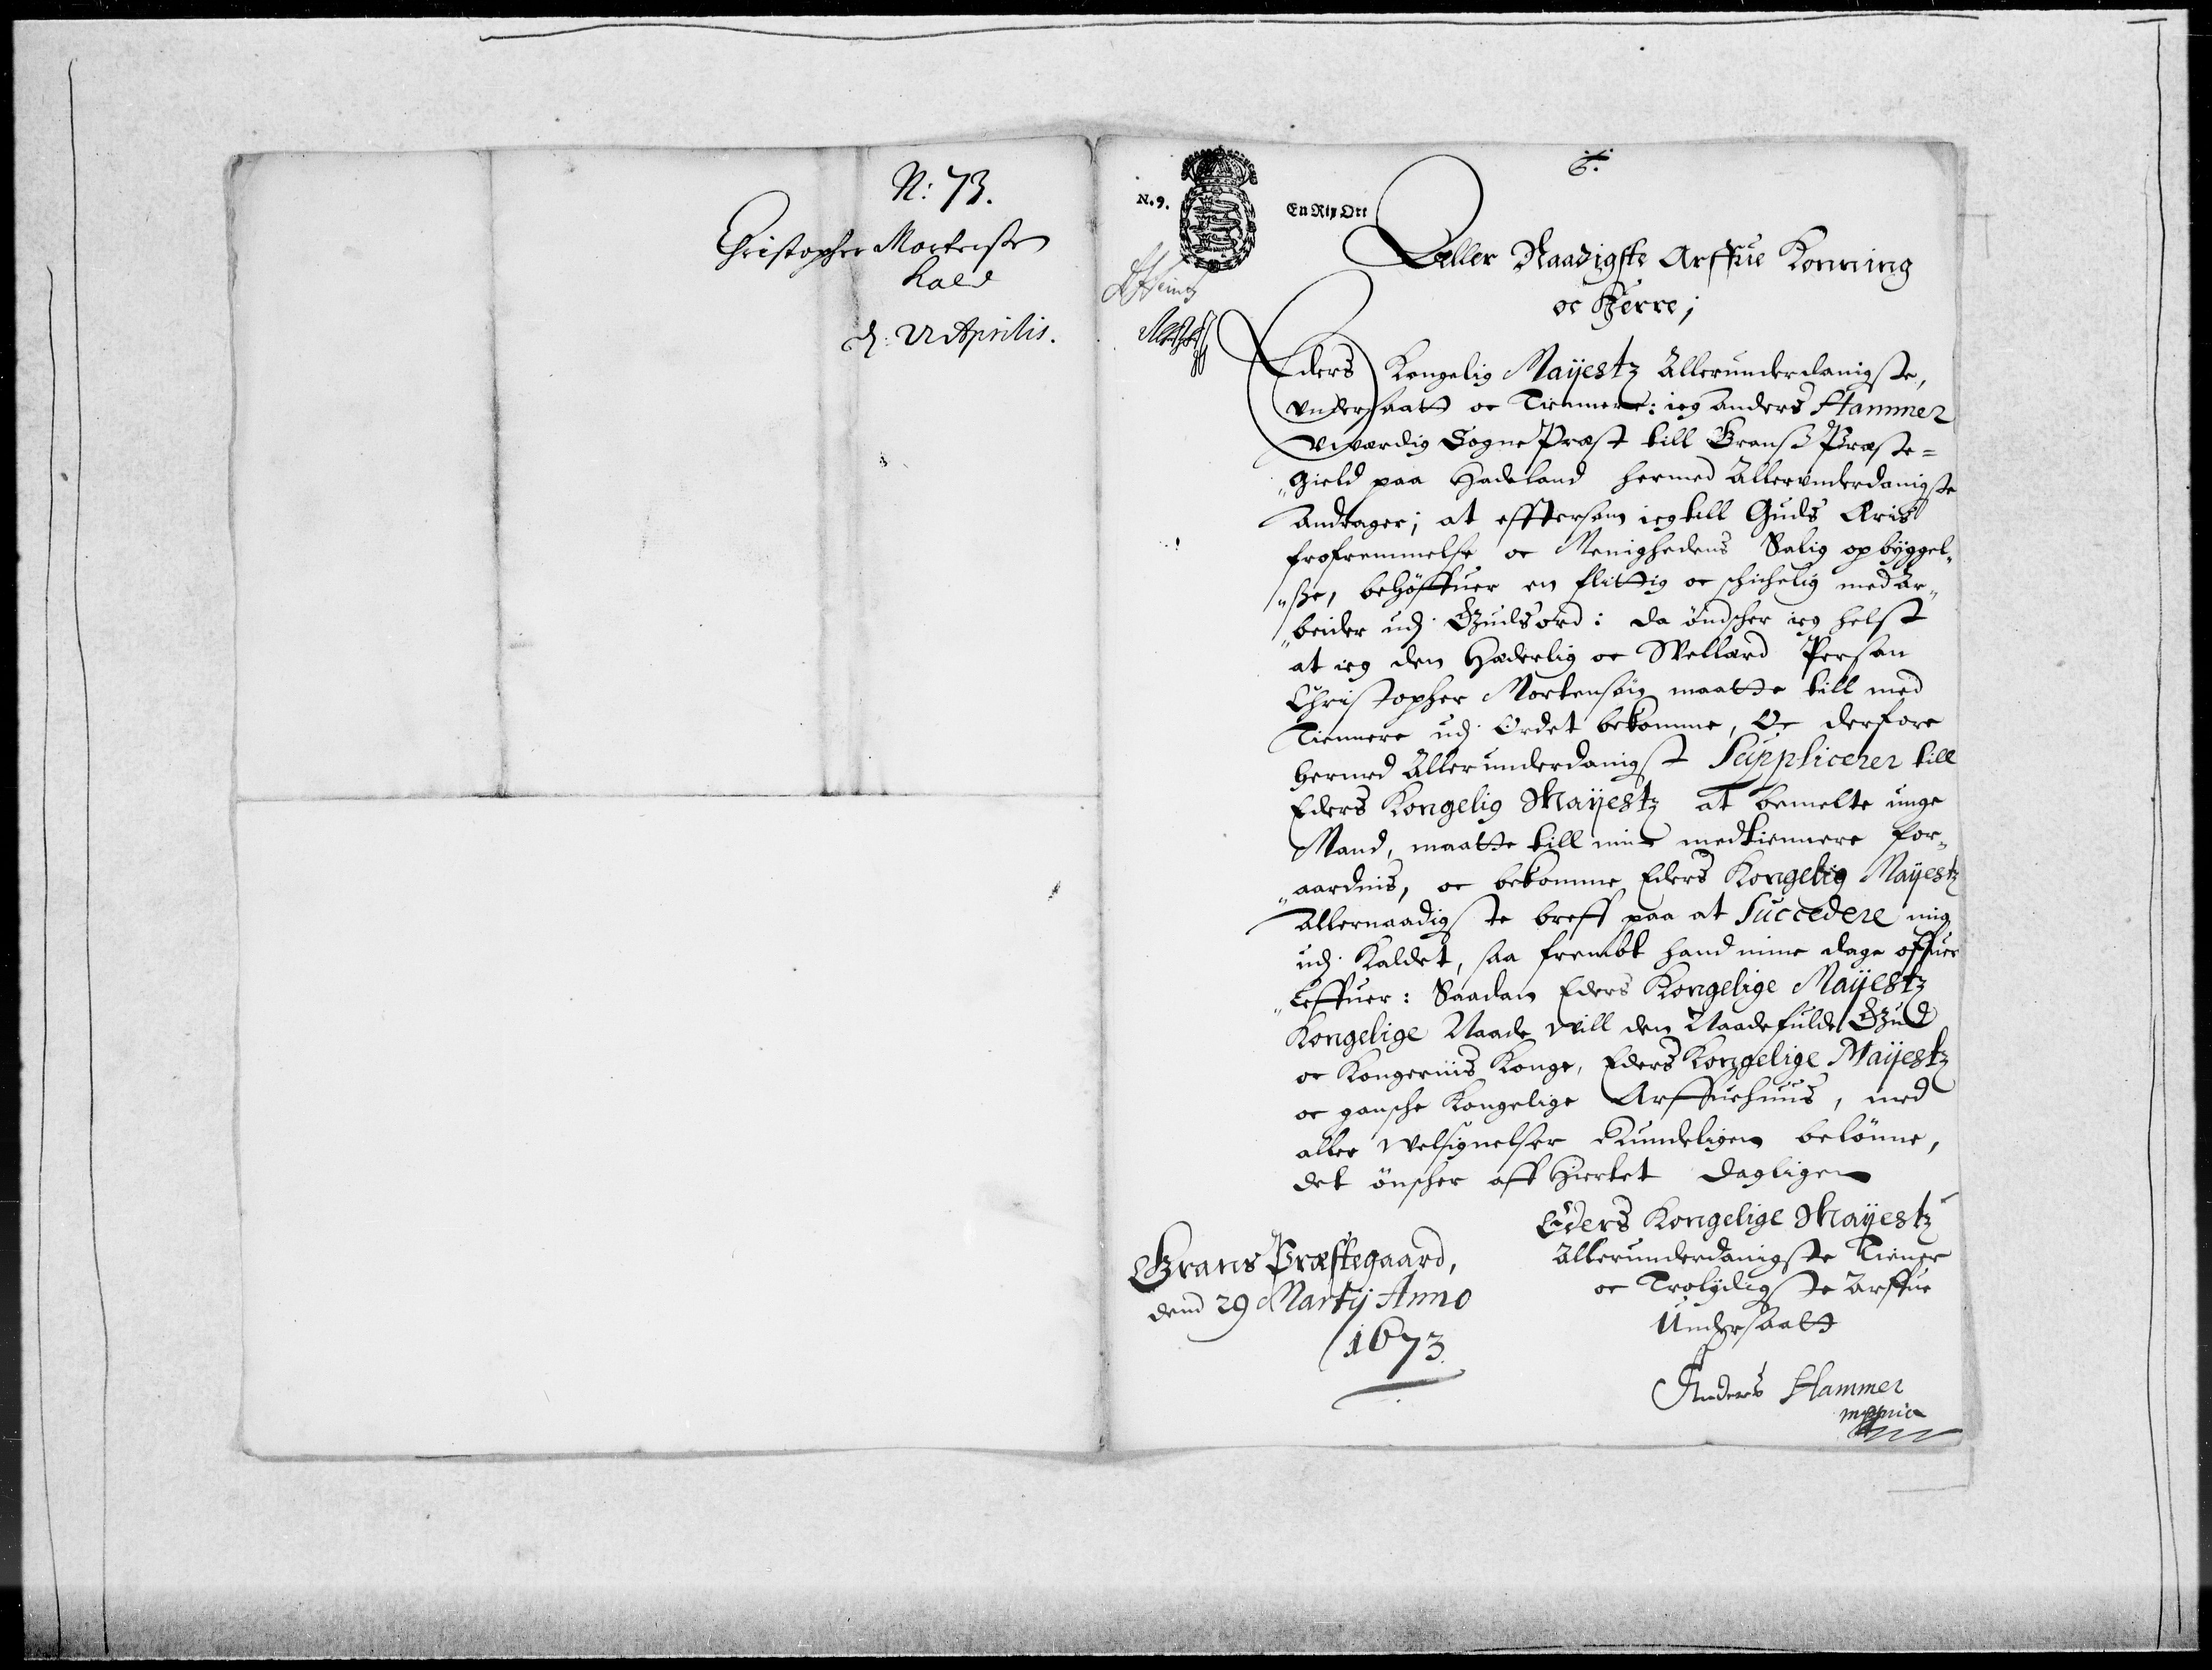 N: 73.
Christopher Mortensen
Kald
d: 21 Aprilis.
N. 9.
En Rix Ort
6.
Aller Naadigste Arffue Konning
oc Herre;
Eders Kongelig Mayestz Allerunderdanigste,
vndersaatt oc Tiennere: ieg Anders Hammer
vwærdig Sogne Præst till Granss Præste=
gield paa Hadeland hermed Allervnderdanigste
Andrager; at efftersom ieg till Guds Æris
frofremmelse oc Menighedens Salig opbyggel„
„sse, behöffuer en flittig oc schichelig medAr„
„beider udj Gudsord: da öndscher ieg helst
at ieg den Hæderlig oc Wellærd Person
Christopher Mortensön maatte till med
Tiennere udj Ordet bekomme, Oc derfore
hermed Allerunderdanigst Supplicerer till
Eders Kongelig Mayestz at bemelte unge
Mand, maatte till min medtiennere for„
„aardnis, oc bekomme Eders Kongelig Mayestz
Allernaadigste breff paa at Succedere mig
udj Kaldet, saa frembt hand mine dage offuer
„Leffuer: Saadan Eders Kongelige Mayestz
Kongelige Naade will den Naadefulde Gud
oc Kongernis Konge, Eders Kongelige Mayestz
oc gansche Kongelige Arffuehuus, med
aller welsignelser Rundeligen belönne,
det önscher aff Hiertet dagligen
Eders Kongelige Mayestz
Allerunderdanigste Tiener
oc Trolydigste Arffue
Undersaatt
Anders Hammer
mppria
Grans Præstegaard,
dend 29 Martij Anno
1673.